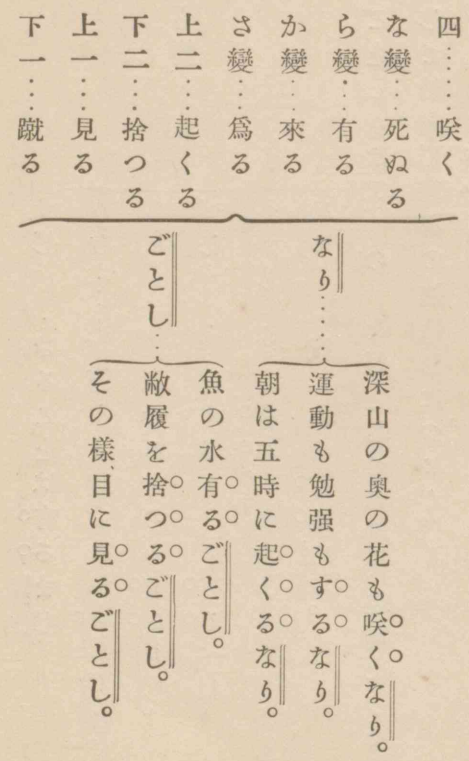 四……咲く
な變…死ぬる
ら變…有る
か變…來る
さ變…爲る
上二…起くる
下二…捨つる
上一…見る
下一…蹴る
なり……
深山の奥の花も咲くなり。
運動も勉强もするなり。
朝は五時に起くるなり。
ごとし…
魚の水有るごとし。
敝履を捨つるごとし。
その樣、目に見るごとし。